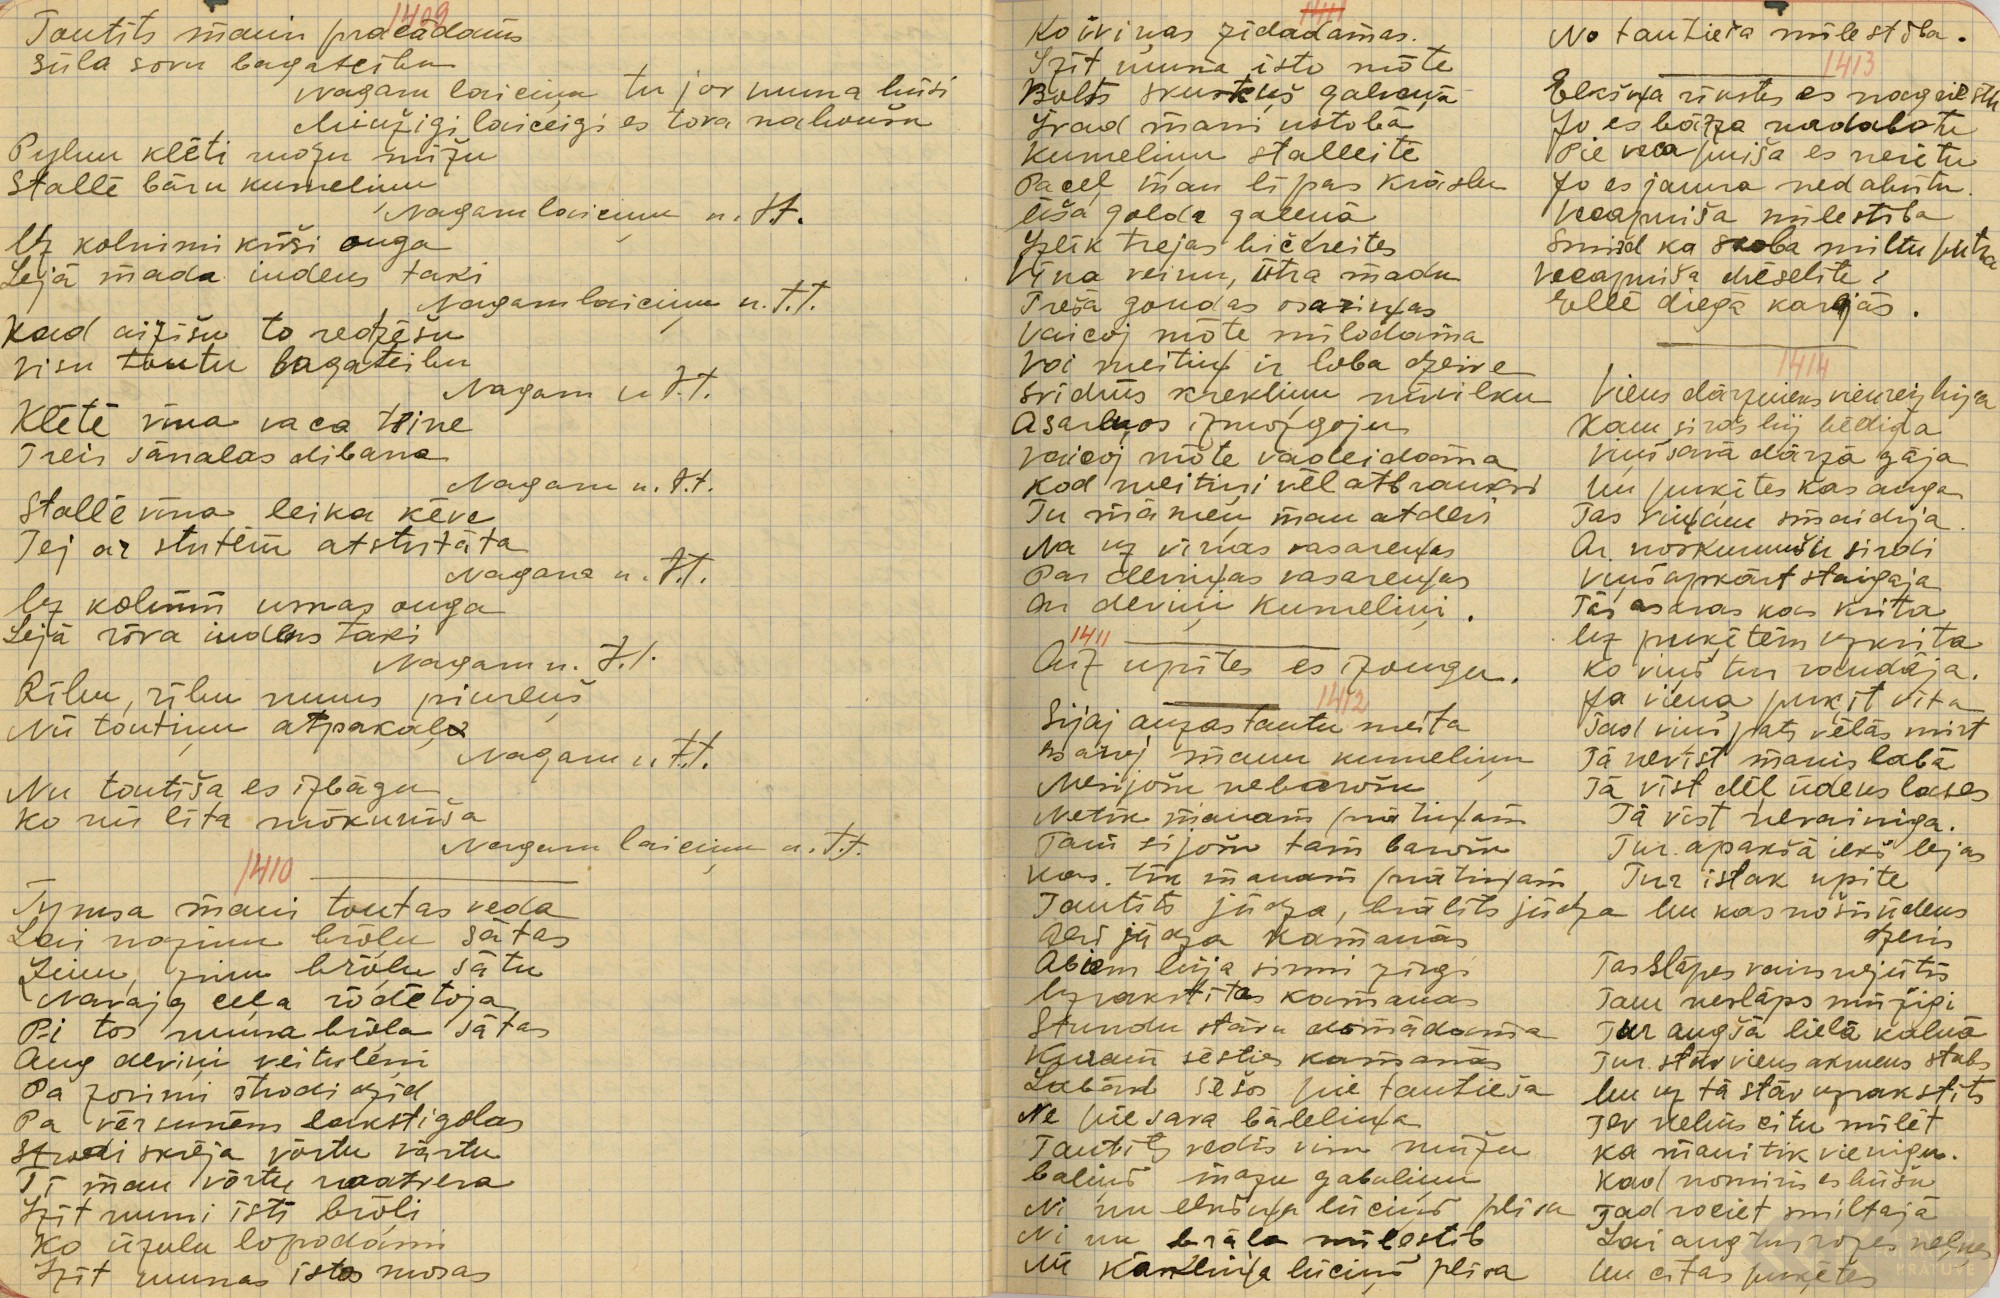 1409
Tautīts mani pracādams
Sūla sovu bagateibu
Nagaru laiceņu tu jor muna būsi
Mūžigi laiceigi es tova naboušu
Pylnu klēti mozu mīžu
Stallē bāru kumeliņu
Nagaru laiceņu u. t.t.
Uz kolnimi kūši ouga
Lejā mada iudeņs taki
Nagaru laiceņu u. t.t.
Kad aizīšu to redzēšu
visu toutu bagateibu
Nagaru u. t.t.
Klētē vīna vaca tine
Treis sānalas dibana
Nagaru u. t.t.
Stallē vīna leika kēve
Tej ar stutēm atstutāta
Nagaru u. t.t.
Uz kolnim usnas ouga
Lejā rōva iudens taki
Nagaru u. t.t.
Ribu, ribu muns piureņš
Nū toutiņu atpakaļ
Nagaru u. t.t.
Nu toutīša es izbāgu
Ko nū līta mōkuniša
Nagaru laiceņu u. t.t.
1410
Tymsa mani toutas veda
Lai nazinu brōļu sātas
Zinu, zinu brōļu sātu
Navajg ceļa rōdētoja
Pi tos muna brōļa sātas
Aug deviņi veituleņi
Pa zorimi strodi dzid
Pa vērsunēm lakstigolas
Strodi skrēja vōrtu vārtu
Ti man vōrtu naatvera
Izīt muni isti brōļi
Ko ūzulu lopodami
Izīt munas istas mosas
1411
Ko vvinas zīdadamas.
Izīt muna isto mōte
Bolts skusteņš galveņā
Īvad mani ustobā
Kumeliņu stalleitē
Pacēl man lipas krāslu
ūša golda galeņā
Izlīk trejas bičereites
Vīna veinu, ūtra madu
Treša goudas osariņas
Vaicoj mōte milodama
Voi meitiņ ir loba dzeive
Svidrūs krekliņu nūvilku
Asareņos izmozgoju
Vaicoj mōte vadeidama
Kod meitiņi vēl atbrauksi
Tu māmeņ man atdevi
Na uz vinas vasareņas
Par deviņas vasareņas
Ar deviņi kumeliņi.
1411
Aiz upites es izougu.
1412
Sijaj auzas tautu meita
Barvj manu kumeliņu
Nesijošu nebarošu
Netik manam prātiņam
Tam sijošu tam barošu
Kas tik manam prātiņam
Tautits jūdza, brālits jūdza
Abi jūdza kamanās
Abiem bija sirmi zirgi
Izrakstitas kamanas
Stundu stāvu domādama
Kuram sēsties kamanās
Labāk sēšos pie tautieša
Ne pie sava bāleliņa
Tautits vedis visu mūžu
baliņš mazu gabaliņu
Ni nu elkšņa lūciņš plisa
Ni nu brāļa milestib
Nu kārkliņa lūciņš plisa
No tautieša milestiba.
1413
Elkšņa rikstes es nagriežtu
Jo es bārza nadabotu
Pie veca puiša es neietu
Jo es jauna nedabutu.
Vecapuiša milestiba
Smird ka skaba miltu putra
Vecapuiša dvēselite
Ellē diega kargās.
1414
Viens dārznieks vienreiz bija
Kam sirds bij bēdiga
Viņš savā dārzā gāja
Un puķites kas auga
Tas viņam smaidija.
Ar noskumušu sirdi
Viņš apkārt staigaja
Tās asaras kas krita
Uz puķitēm uzkrita
Ko viņš tur raudāja.
Ja viena puķit vita
Tad viņš pats vēlās mirt
Tā nevist manis labā
Tā vist dēl ūdens lases
Tā vist nevainiga.
Tur apakšā iekš lejas
Tur istak upite
Un kas no šo ūdens
dzeris
Tas slāpes vairs nejutis
Tam neslāps mūžigi
Tur augšā lielā kalnā
Tur stāv viens akmens stabs
Un uz tā stāv uzrakstits
Tev nebūs citu milēt
Ka mani tik vienigu.
Kad nomiris es būšu
Tad rociet smiltajā
Lai aug tur rozes nelkes
Un citas puķites